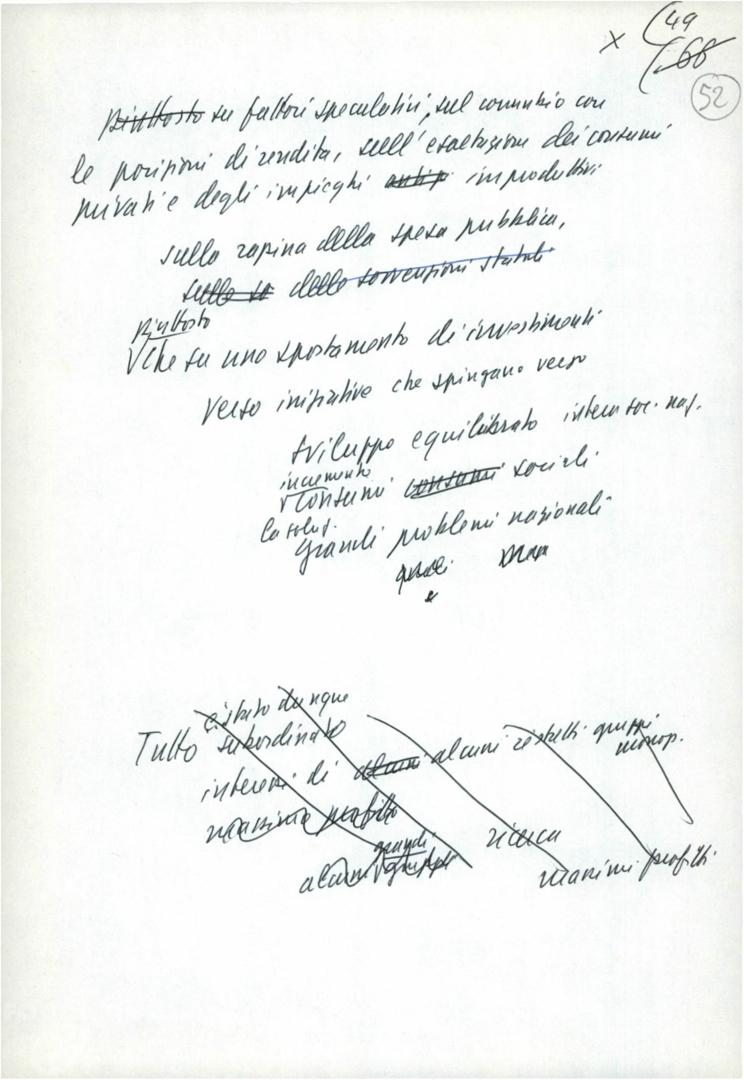 x 49
68
52
Piuttosto su fattori speculativi, sul connubio con
le posizioni di rendita, sull'esaltazione dei consumi
privati e degli impieghi improduttivi
sulla rapina della spesa pubblica,
delle sovvenzioni statali
Piuttosto
che su uno spostamento di investimenti
verso iniziative che spingano verso
sviluppo equilibrato
incremento
consumi consumi sociali
la soluz.
grandi problemi nazionali
quali
è stato dunque
Tutto subordinato
interessi di alcuni alcuni ristretti gruppi
monop.
massimo profitto
ricerca
grandi
alcuni gruppi
massimi profitti